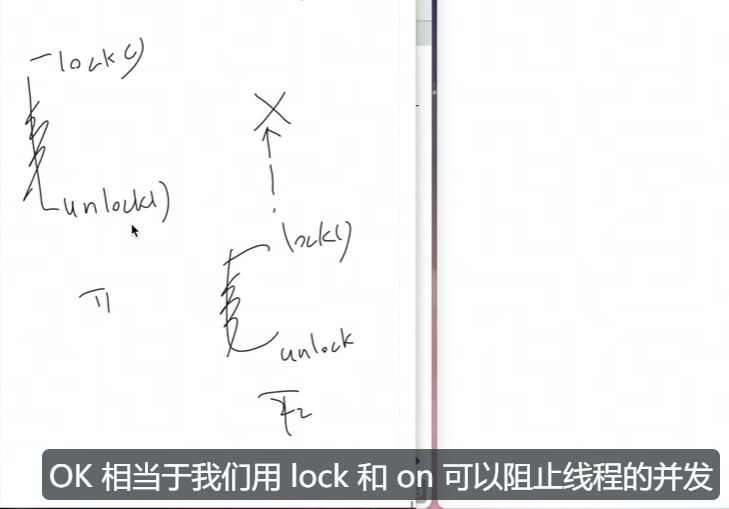 lock()
unlock()
lock()
unlock
T1
T2
OK 相当于我们用 lock 和 on 可以阻止线程的并发